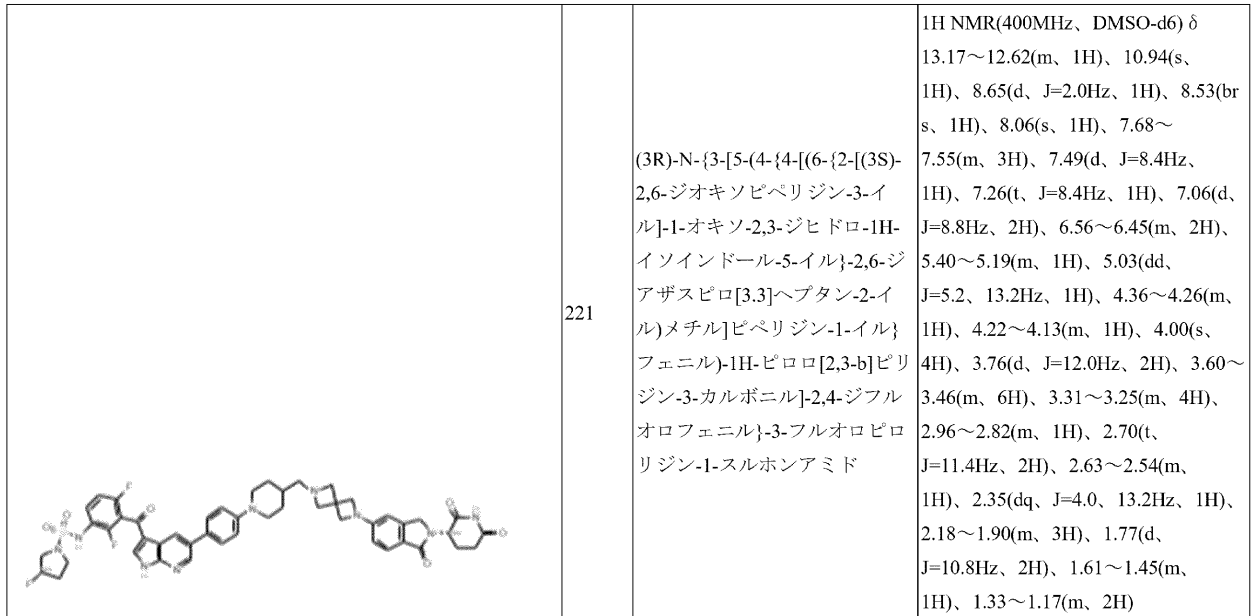 221
(3R)-N-{3-[5-(4-{4-[(6-{2-[(3S)-
2,6-ジオキソピペリジン-3-イ
ル]-1-オキソ-2,3-ジヒドロ-1H-
イソインドール-5-イル}-2,6-ジ
アザスピロ[3.3]ヘプタン-2-イ
ル)メチル]ピペリジン-1-イル}
フェニル)-1H-ピロロ[2,3-b]ピリ
ジン-3-カルボニル]-2,4-ジフル
オロフェニル}-3-フルオロピロ
リジン-1-スルホンアミド
1H NMR(400MHz、DMSO-d6) δ
13.17～12.62(m、1H)、10.94(s、
1H)、8.65(d、J=2.0Hz、1H)、8.53(br
s、1H)、8.06(s、1H)、7.68～
7.55(m、3H)、7.49(d、J=8.4Hz、
1H)、7.26(t、J=8.4Hz、1H)、7.06(d、
J=8.8Hz、2H)、6.56～6.45(m、2H)、
5.40～5.19(m、1H)、5.03(dd、
J=5.2、13.2Hz、1H)、4.36～4.26(m、
1H)、4.22～4.13(m、1H)、4.00(s、
4H)、3.76(d、J=12.0Hz、2H)、3.60～
3.46(m、6H)、3.31～3.25(m、4H)、
2.96～2.82(m、1H)、2.70(t、
J=11.4Hz、2H)、2.63～2.54(m、
1H)、2.35(dq、J=4.0、13.2Hz、1H)、
2.18～1.90(m、3H)、1.77(d、
J=10.8Hz、2H)、1.61～1.45(m、
1H)、1.33～1.17(m、2H)